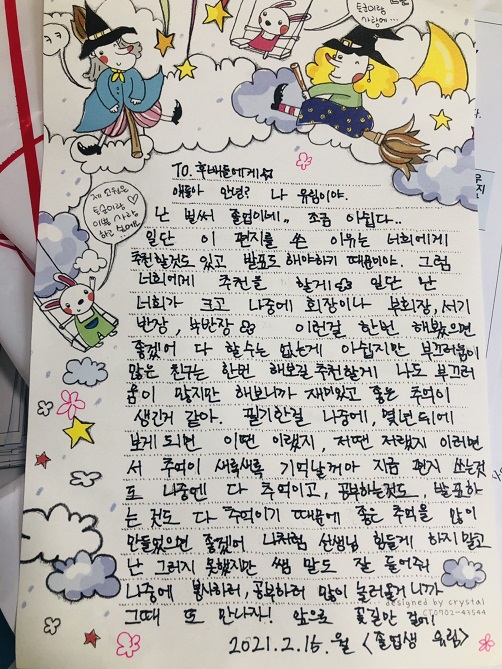 토끼랑
사랑해...
제 소원은
토끼랑
이쁜 사랑
하고 싶어요
To. 후배들에게
얘들아 안녕? 나 유림이야.
난 벌써 졸업이네.. 조금 아쉽다..
일단 이 편지를 쓴 이유는 너희에게
추천할것도 있고 발표도 해야하기 때문이야. 그럼
너희에게 추천을 할게 일단 난
너희가 크고 나중에 회장이나 부회장, 서기
반장, 부반장 이런걸 한번 해봤으면
좋겠어 다 할수는 없는게 아쉽지만 부끄러움이
많은 친구는 한번 해보길 추천할게 나도 부끄러
움이 많지만 해보니까 재미있고 좋은 추억이
생긴거 같아. 필기한걸 나중에, 몇년뒤에
보게 되면 이땐 이랬지, 저땐 저랬지 이러면
서 추억이 새록새록 기억날꺼야 지금 편지 쓰는것
도 나중엔 다 추억이고, 공부하는것도, 발표하
는 것도 다 추억이기 때문에 좋은 추억을 많이
만들었으면 좋겠어 나처럼 선생님 힘들게 하지 말고
난 그러지 못했지만 쌤 말도 잘 들어줘
나중에 봉사하러, 공부하러 많이 놀러올거니까
designed by crystal
CT0702-43544
그때 또 만나자! 앞으로 꽃길만 걸어!
2021.2.15.월 <졸업생 유림>